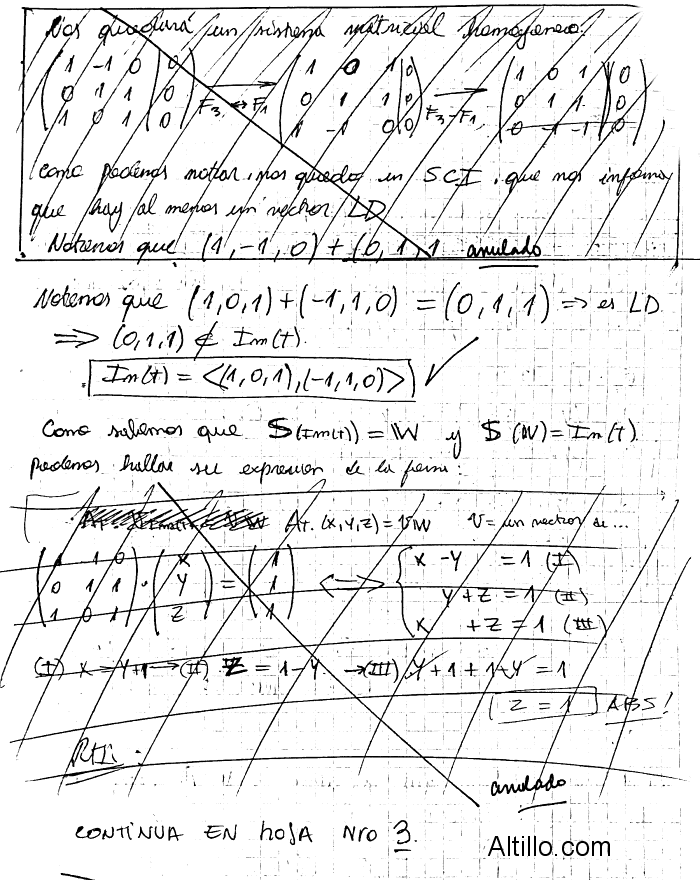 Nos quedará un sistema matricial homogeneo:
( 1 -1 0 | 0 ) ( 1 0 1 | 0 ) ( 1 0 1 | 0 )
( 0 1 1 | 0 ) → F3 ↔ F1 ( 0 1 1 | 0 ) → F3-F1 ( 0 1 1 | 0 )
( 1 0 1 | 0 ) ( 1 -1 0 | 0 ) ( 0 -1 -1 | 0 )
como podemos notar, nos queda un SCI, que nos informa
que hay al menos un vector LD
Notemos que (1,-1,0) + (0,1,1 anulado
Notemos que (1,0,1)+(-1,1,0) = (0,1,1) ⇒ es LD
⇒ (0,1,1) ∉ Im(t).
Im(t) = <(1,0,1),(-1,1,0)> ✓
Como sabemos que S(Im(t)) = W y S(W)=Im(t).
podemos hallar su expresion de la forma:
At. (x,y,z) = v W v = un vector de ...
( 1 -1 0 ) ( x ) ( 1 ) { x - y = 1 (I)
( 0 1 1 ) . ( y ) = ( 1 ) ⟺ { y + z = 1 (II)
( 1 0 1 ) ( z ) ( 1 ) { x + z = 1 (III)
(I) x = y+1 → (II) z = 1-y → (III) y+1+1-y = 1
2 = 1 ABS!
Rta:
anulado
CONTINUA EN HOJA Nro 3.
Altillo.com